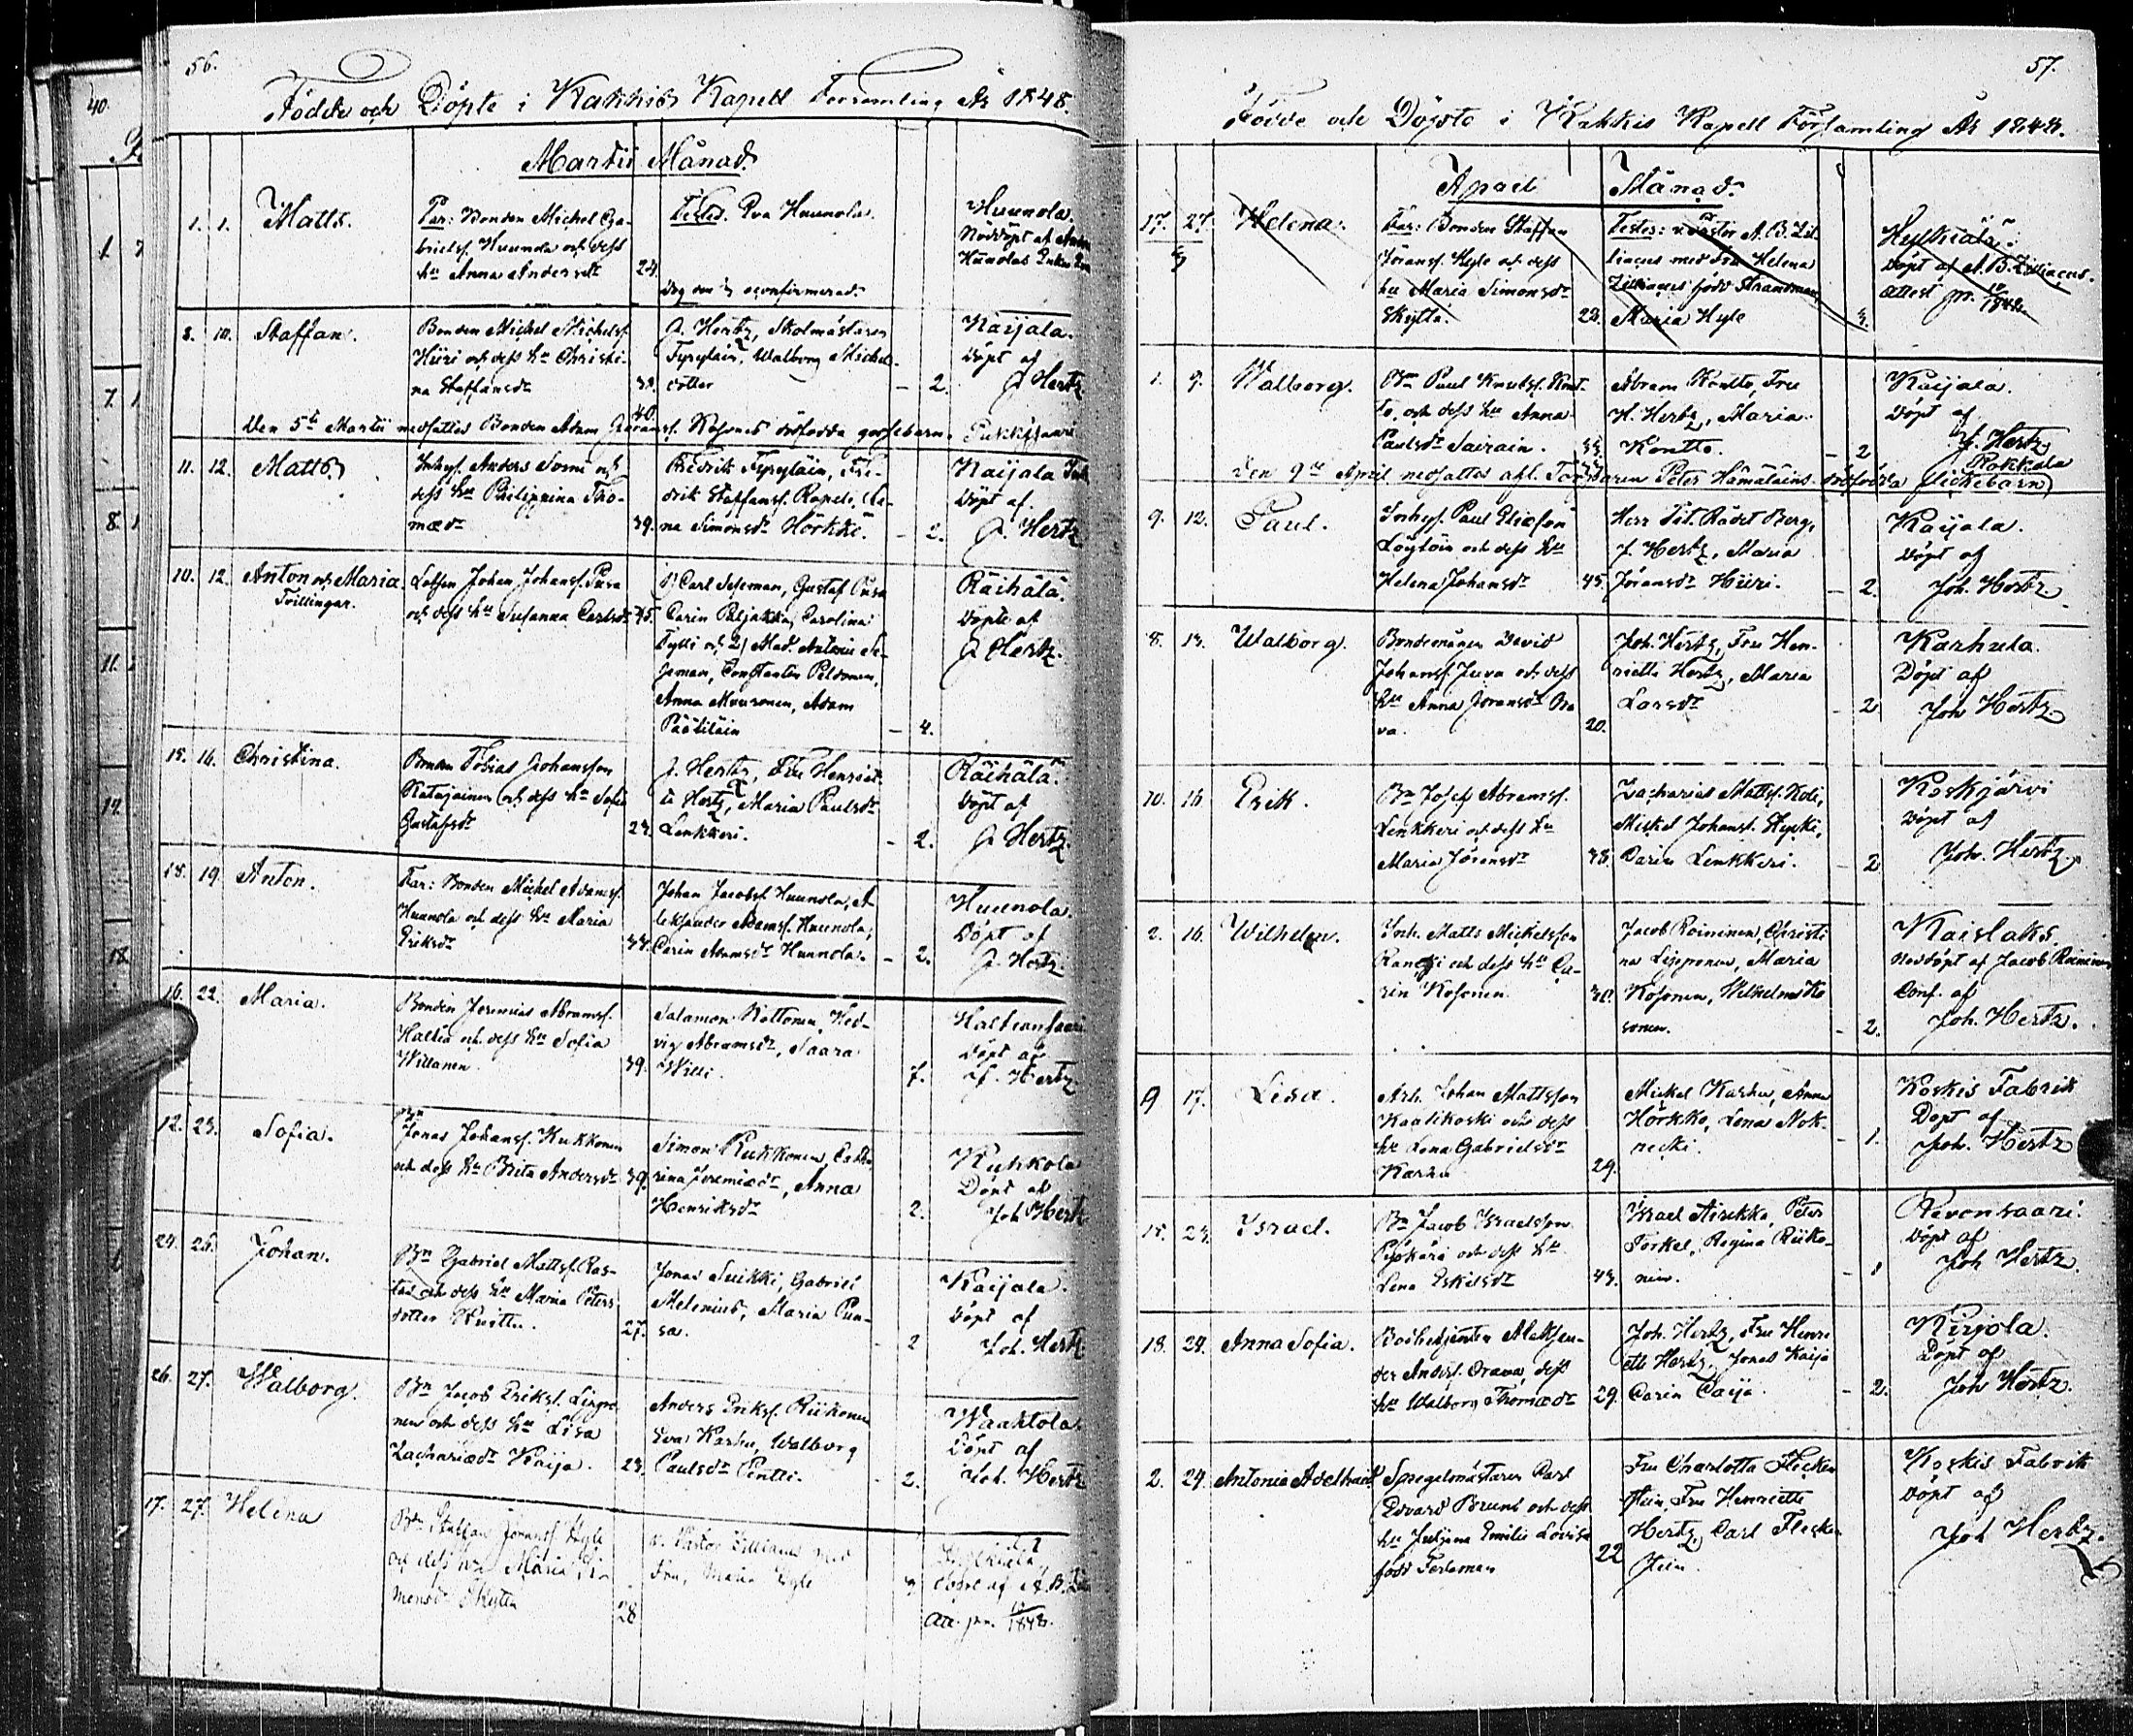 56.
Födde och Döpte i Kakkis Kapell Församling År 1848.
Martii Månad.
1. 1. Matts.
Far: Bonden Michel Ga-
brielsf. Huunola och dess
hu Anna Andersdr 24.
Testes. Eva Huunola.
Huunola.
Nöddöpt af
Huunolas Enka
8. 10. Staffan.
Bonden Michel Michelsf.
Hiiri och dess hu Christi-
na Staffansdr 39.
J. Hertz, Skolmästaren
Fyryläin, Walborg Michels-
dotter – 2.
Kaijala.
Döpt af
J. Hertz
Den 5te Martii nedsattes Bonden Adam Göransf. Kosonens dödfödda gossebarn. Pukkisaari
11. 12. Matts
Inhys. Anders Sormi och
dess hu Philippina Tho-
mædr 39.
Fredrik Fyryläin, Fre-
drik Staffansf. Rapeli, Le-
na Simonsdr Hörkkö. – 2.
Kaijala
Döpt af.
J. Hertz
10. 12. Anton och Maria
Tvillingar.
Lotsen Johan Johansf. Pusa
och dess hu Susanna Carlsdr 45.
1) Carl Seseman, Gustaf Pusa
Carin Paljakka, Carolina
Tylli och 2) Mad. Antonie Se-
seman, Constantin Peldonen,
Anna Muuronen, Adam
Päätiläin – 4.
Räihälä.
Döpte af
J. Hertz.
15. 16. Christina.
Bonden Tobias Johansson
Katajainen och dess hu Sofia
Gustafsdr 23.
J. Hertz, Fru Henriet-
te Hertz, Maria Paulsdr
Lenkkeri. – 2.
Räihälä.
Döpt af
J. Hertz.
18. 19. Anton.
Far: Bonden Michel Adamsf.
Huunola och dess hu Maria
Eriksdr 34.
Johan Jacobsf. Huunola, A-
leksander Adamsf. Huunola,
Carin Adamsdr Huunola. – 2.
Huunola.
Döpt af
J. Hertz.
16. 22. Maria.
Bonden Jeremias Abramsf.
Haltia och dess hu Sofia
Willanen. 39.
Salamon Kottonen, Hed-
vig Abramsdr, Saara
Willi. 7.
Haltiansaari
Döpt af
J. Hertz
12. 23. Sofia.
Bn Jonas Johansf. Kukkonen
och dess hu Brita Andersdr 39.
Simon Kukkonen, Catha
rina Jeremiædr, Anna
Henriksdr 2.
Kuhkola
Döpt af
Joh. Hertz
24. 26. Johan.
Bn Gabriel Mattsf. Ras-
tas och dess hu Maria Peters
dotter 27.
Jonas Suikki, Gabriel
Melenius, Maria Pun-
sa. 2
Kaijala.
Döpt af
Joh. Hertz
26. 27. Walborg.
Bn Jacob Eriksf. Lippo
nen och dess hu Lisa
Zachariædr Kaija. 23.
Anders Eriksf. Riikonen
Eva Karhu, Walborg
Paulsdr Pentti. 2.
Waahtola
Döpt af
Joh. Hertz
17. 27. Helena
Bn Staffan Göransf. Hyle
och dess hu Maria Si-
monsdr Skytta 28
v. Pastor Zilliacus med
Fru, Maria Hyle 3
döpt af A. B.
Att. pr. 1848.
57.
Födde och Döpte i Kakkis Kapell Församling År 1848.
April Månad.
17. 27. Helena.
3
Far: Bonden Staffan
Göransf. Hyle och dess
hu Maria Simonsdr
Skytta. 28.
Testes: v. Pastor A. B. Zil-
liacus med Fru Helena
Zilliacus född Strandman
Maria Hyle 3.
Hylkiälä.
Döpt af A. B. Zilliacus.
attest pr. 1848.
1. 9. Walborg.
Bn Paul Knutsf. Kont-
to, och dess hu Anna
Paulsdr Sairain.
Abram Kontto, Fru
H. Hertz, Maria
Kontto. – 2
Kaijala.
Döpt af
J. Hertz
Den 9de April nedsattes afl. Torparen Peter Hämäläins dödfödda flickebarn Rokkala
9. 12. Paul.
Inhys. Paul Eliæson
Löytöin och dess hu
Helena Johansdr 45.
Herr Tit. Rådet Berg,
J. Hertz, Maria
Göransdr Hiiri. – 2.
Kaijala.
Döpt af
Joh. Hertz.
8. 13. Walborg.
Bondemågen David
Johansf. Juva och dess
hu Anna Göransdr
va. 20.
Joh. Hertz, Fru Hen-
riette Hertz, Maria
Larsdr – 2
Karhula.
Döpt af
Joh Hertz
10. 16 Erik.
Bn Josef Abramsf.
Lenkkeri och dess hu
Maria Göransdr 38.
Zacharias Mattsf. Koli,
Michel Johansf. Hyski,
Carin Lenkkeri. – 2
Koskjärvi
Döpt af
Joh. Hertz
2. 16. Wilhelm.
Inh. Matts Michelsson
Rancki och dess hu Ca-
rin Kosonen 30.
Jacob Roininen, Christi
na Lipponen, Maria
Kosonen, Wilhelm Ko
sonen. – 2.
Kaislaks.
Nöddöpt af Jacob Roininen
Conf. af
Joh. Hertz.
9 17. Lisa.
Arb. Johan Mattsson
Kaalikoski och dess
hu Lena Gabrielsdr
Karhu 29.
Michel Karhu, Anna
Hörkkö, Lena Nok-
necki. – 1.
Koskis Fabrik
Döpt af
Joh. Hertz
15. 23. Israel.
Bn Jacob Israelsson
Pyökäri och dess hu
Lena Eskilsdr 43.
Israel Airikka, Peter
Torkel, Regina Riiko-
nin. – 1
Revonsaari.
Döpt af
Joh Hertz.
18. 24. Anna Sofia.
Bosbetjenten Aleksan-
der Andersf. Orava, dess
hu Walborg Thomædr 29.
Joh. Hertz, Fru Henri
ette Hertz, Jonas Kaija
Carin Caija. – 2.
Kirjola.
Döpt af
Joh Hertz.
2. 24. Antonia Adelhaid
Spegelmästaren Carl
Edvard Brunl och dess
hu Julyana Emilie Lovisa
född Tesleman 22
Fru Charlotta Flecken
stein, Fru Henriette
Hertz, Carl Flecken
stein.
Koskis Fabrik
Döpt af
Joh Hertz.